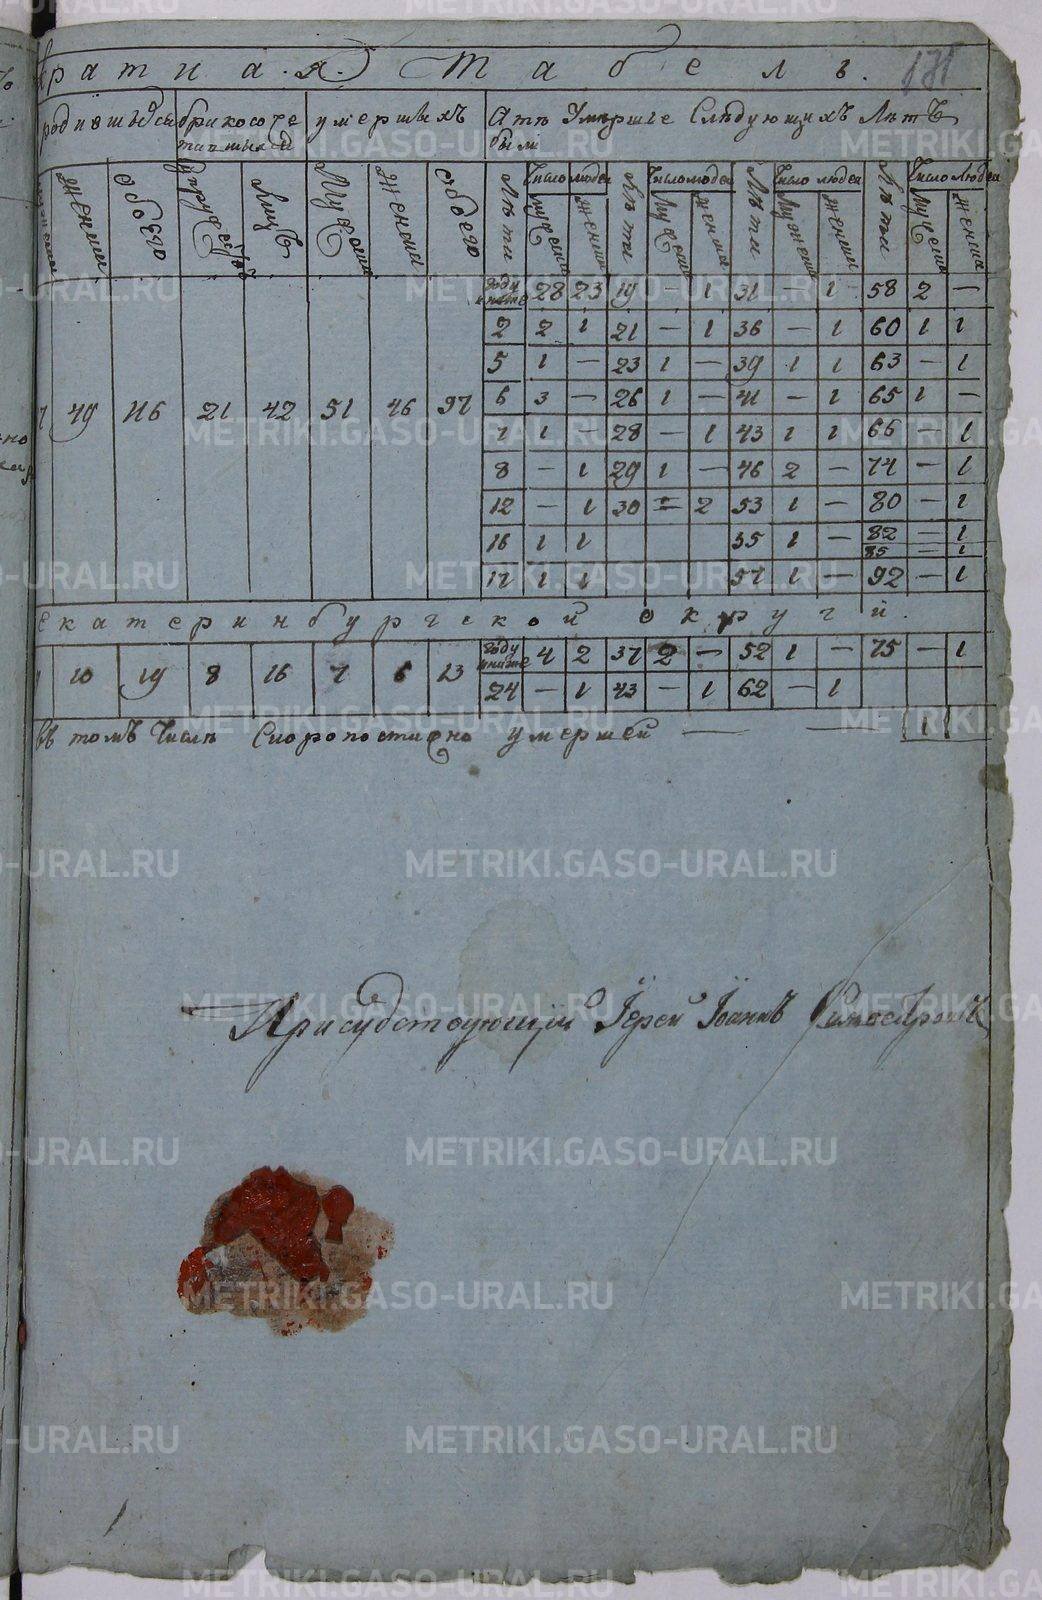 кратная Табель. 171
родившихся бракосоче умершихъ Атѣ Умершіе Слѣдующихъ Лѣтъ
тавшихся были
Женска Обоего Супружествъ Лицъ Мужеска Женска Обоего Лѣта Число людей Лѣта Число людей Лѣта Число людей Лѣта Число людей
Мужеска Женска Мужеска Женска Мужеска Женска Мужеска Женска
году и ниже 28 23 19 — 1 31 — 1 58 2 —
2 2 1 21 — 1 36 — 1 60 1 1
5 1 — 23 1 — 39 1 1 63 — 1
49 116 21 42 51 46 97 6 3 — 26 1 — 41 — 1 65 1 —
7 1 — 28 — 1 43 1 1 66 — 1
8 — 1 29 1 — 46 2 — 74 — 1
12 — 1 30 — 2 53 1 — 80 — 1
16 1 1 55 1 — 82 — 1
85 — 1
17 1 1 57 1 — 92 — 1
Екатеринбургской округи.
10 19 8 16 7 6 13 году и ниже 4 2 37 2 — 52 1 — 75 — 1
24 — 1 43 — 1 62 — 1
въ томъ Числѣ Скоропостижно умершей — — 1
Присудствующій Іерей Іоаннъ
METRIKI.GASO-URAL.RU